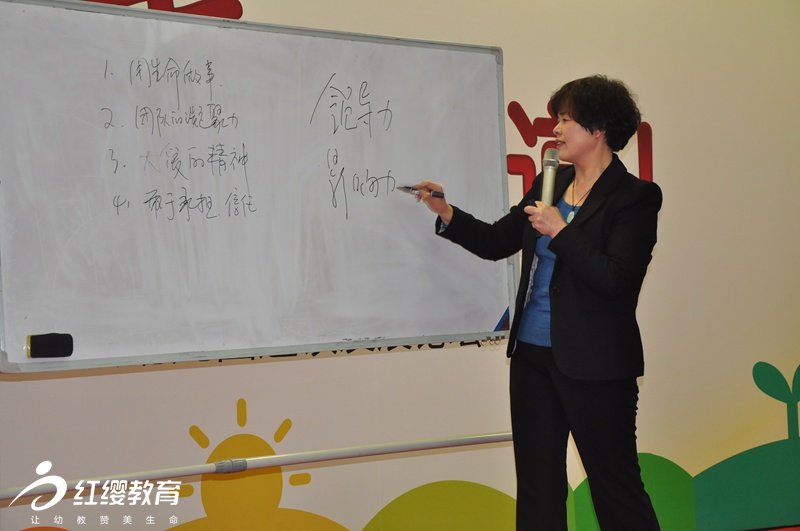 1. 用生命做事
2. 团队的凝聚力
3. 大爱的精神
4. 敢于承担 信任
领导力
影响力
训
红缨教育
让幼教赞美生命